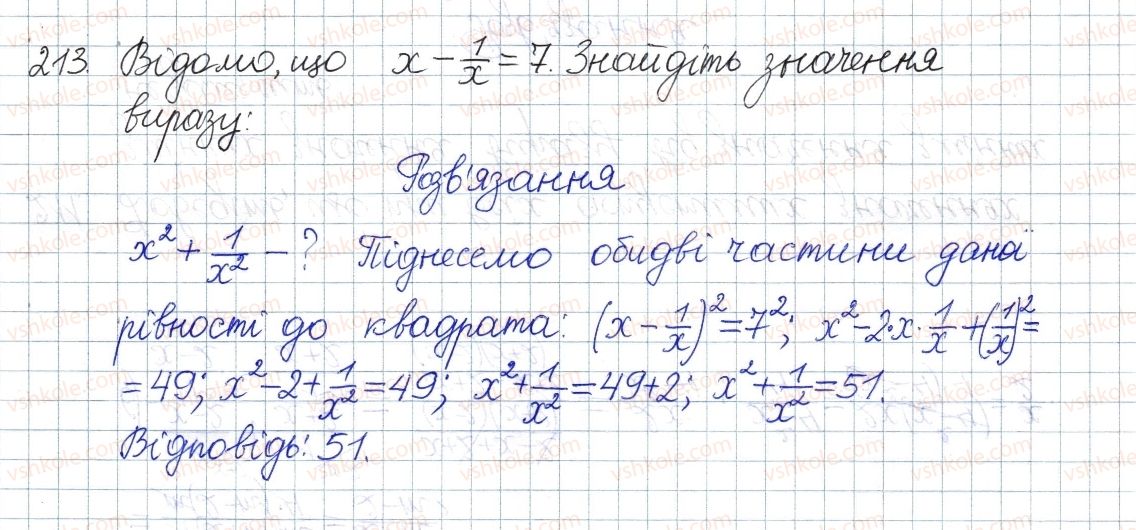 213. Відомо, що x - 1/x = 7. Знайдіть значення
виразу:
Розв'язання
x² + 1/x² - ? Піднесемо обидві частини даної
рівності до квадрата: (x - 1/x)² = 7²; x² - 2·x·1/x + (1/x)² =
= 49; x² - 2 + 1/x² = 49; x² + 1/x² = 49 + 2; x² + 1/x² = 51.
Відповідь: 51.